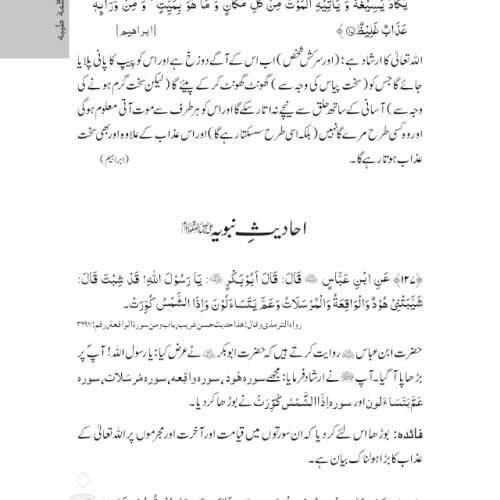 کلمۂ طیبہ
يَكَادُ يُسِيْغُهٗ وَ يَاْتِيْهِ الْمَوْتُ مِنْ كُلِّ مَكَانٍ وَّ مَا هُوَ بِمَيِّتٍ ؕ وَ مِنْ وَّرَآئِهٖ
عَذَابٌ غَلِيْظٌ﴾ [ابراهيم]
اللہ تعالیٰ کا ارشاد ہے: (اور سرکش شخص) اب اس کے آگے دوزخ ہے اور اس کو پیپ کا پانی پلایا
جائے گا جس کو (سخت پیاس کی وجہ سے) گھونٹ گھونٹ کر کے پیئے گا (لیکن سخت گرم ہونے کی
وجہ سے) آسانی کے ساتھ حلق سے نیچے نہ اتار سکے گا اور اس کو ہر طرف سے موت آتی معلوم ہوگی
اور وہ کسی طرح مرے گا نہیں (بلکہ اسی طرح سسکتا رہے گا) اور اس عذاب کے علاوہ اور بھی سخت
عذاب ہوتا رہے گا۔ (ابراہیم)
احادیثِ نبویہ ﷺ
﴿۱۲۷﴾ عَنِ ابْنِ عَبَّاسٍ ؓ قَالَ: قَالَ اَبُوْبَكْرٍ ؓ: يَا رَسُوْلَ اللهِ! قَدْ شِبْتَ قَالَ:
شَيَّبَتْنِيْ هُوْدٌ وَالْوَاقِعَةُ وَالْمُرْسَلَاتُ وَعَمَّ يَتَسَاءَلُوْنَ وَاِذَا الشَّمْسُ كُوِّرَتْ۔
رواہ الترمذی وقال: ھذا حدیث حسن غریب، باب ومن سورة الواقعة، رقم: ۳۲۹۷
حضرت ابن عباس ؓ روایت کرتے ہیں کہ حضرت ابوبکر ؓ نے عرض کیا: یا رسول اللہ! آپ پر
بڑھاپا آگیا۔ آپ ﷺ نے ارشاد فرمایا: مجھے سورہ ھُود، سورہ واقعہ، سورہ مُرسَلات، سورہ
عَمَّ یَتَسَاءَلُون اور سورہ اِذَا الشَّمْسُ کُوِّرَتْ نے بوڑھا کر دیا۔
فائدہ: بوڑھا اس لئے کر دیا کہ ان سورتوں میں قیامت اور آخرت اور مجرموں پر اللہ تعالیٰ کے
عذاب کا بڑا ہولناک بیان ہے۔